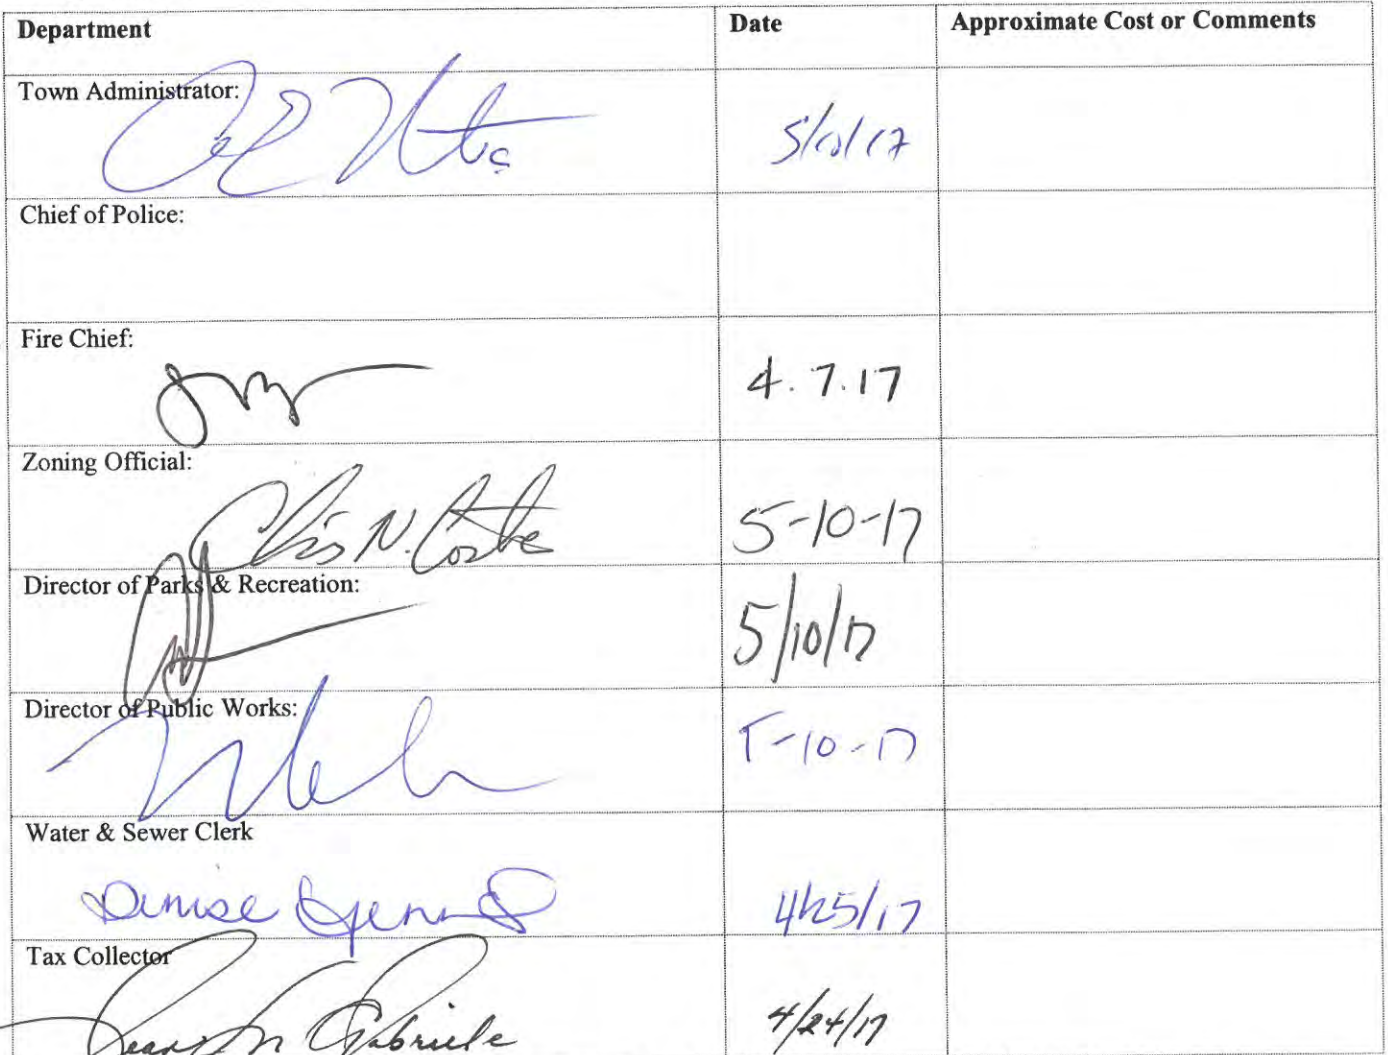 Department Date Approximate Cost or Comments
Town Administrator:
5/10/17
Chief of Police:
Fire Chief:
4.7.17
Zoning Official:
Chris N. Costa 5-10-17
Director of Parks & Recreation:
5/10/17
Director of Public Works:
5-10-17
Water & Sewer Clerk
Denise 4/25/17
Tax Collector
Gabriele 4/24/17